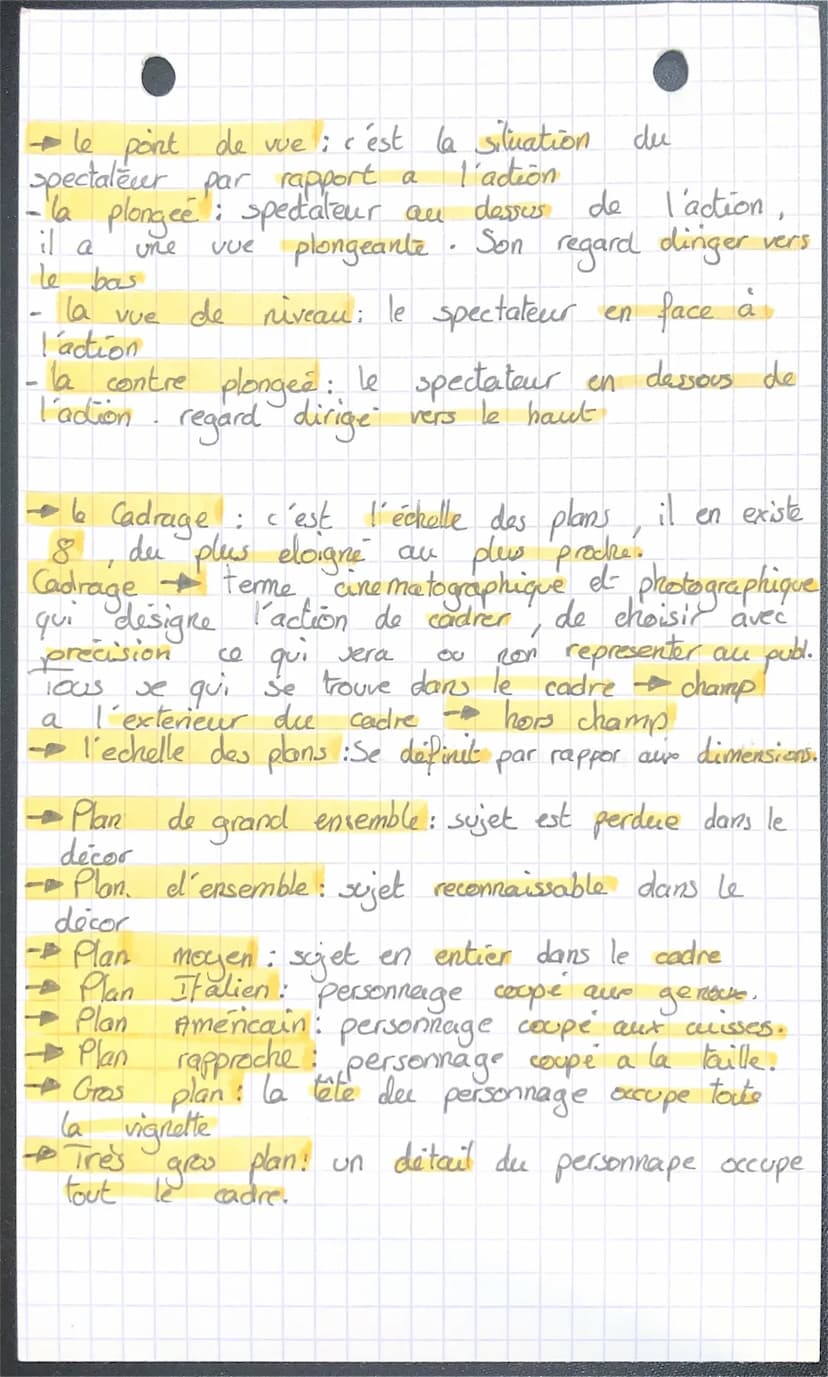 → le point de vue : c'est la situation du
spectateur par rapport a l'action
- la plongeé : spectateur au dessus de l'action,
il a une vue plongeante. Son regard diriger vers
le bas
- la vue de niveau : le spectateur en face à
l'action
- la contre plongeé : le spectateur en dessous de
l'action. regard dirigé vers le haut
→ le Cadrage : c'est l'échelle des plans, il en existe
8, du plus eloigné au plus proche.
Cadrage → terme cinematographique et photographique
qui désigne l'action de cadrer, de choisir avec
précision ce qui sera ou non representer au publ.
Tous se qui se trouve dans le cadre → champ
a l'exterieur du cadre → hors champ
→ l'echelle des plans : Se définit par rappor aux dimensions.
→ Plan de grand ensemble : sujet est perdue dans le
décor
→ Plan. d'ensemble : sujet reconnaissable dans le
décor
→ Plan moyen : sujet en entier dans le cadre
→ Plan Italien : personnage coupé aux genoux.
→ Plan Américain : personnage coupé aux cuisses.
→ Plan rapproche : personnage coupé a la taille.
→ Gros plan : la tête du personnage occupe toute
la vignette
→ Très gros plan : un détail du personnage occupe
tout le cadre.